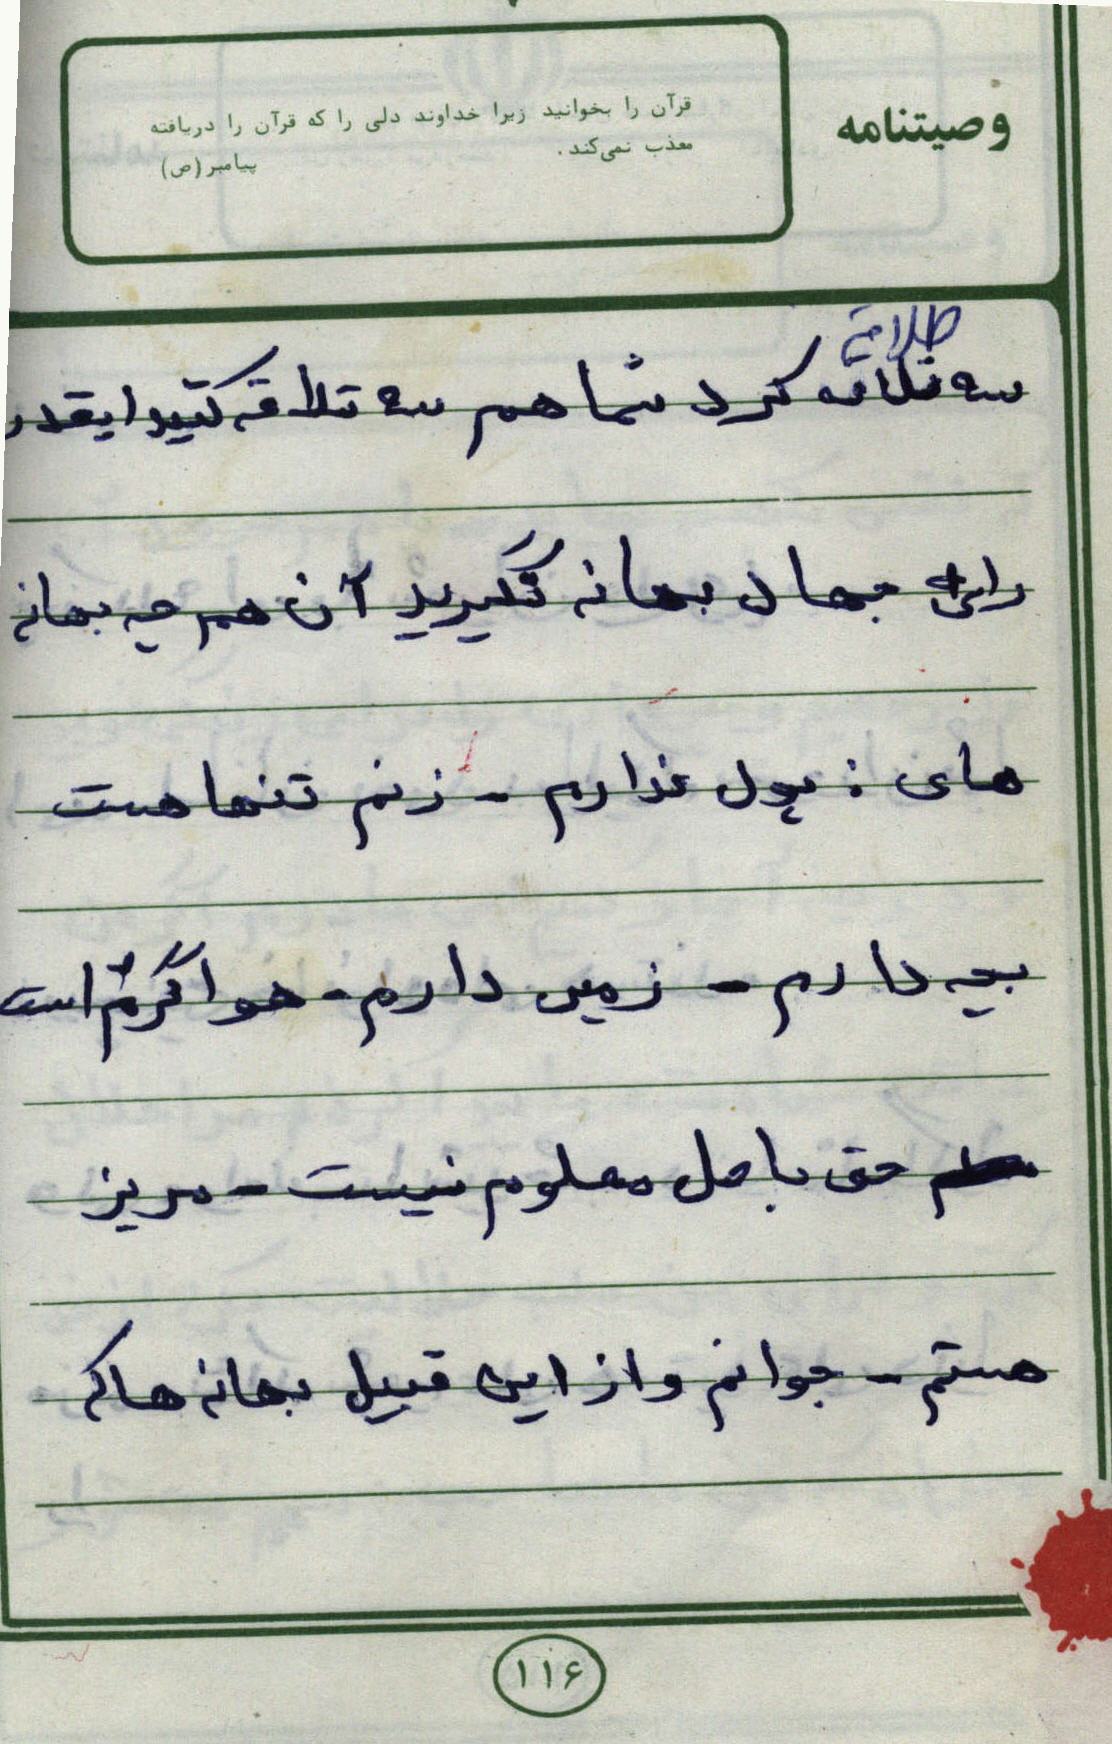 وصیتنامه
قرآن را بخوانید زیرا خداوند دلی را که قرآن را دریافته
معذب نمی‌کند.
پیامبر (ص)
طلاقه
سه تلاقه کرد شما هم سه تلاقه کنید اینقدر
برای جهاد بهانه نگیرید آن هم چه بهانه
های : پول ندارم - زنم تنها هست
بچه دارم - زمین دارم - هوا گرم است
حق باطل معلوم نیست - مریز
هستم - جوانم و از این قبیل بهانه ها که
۱۱۶